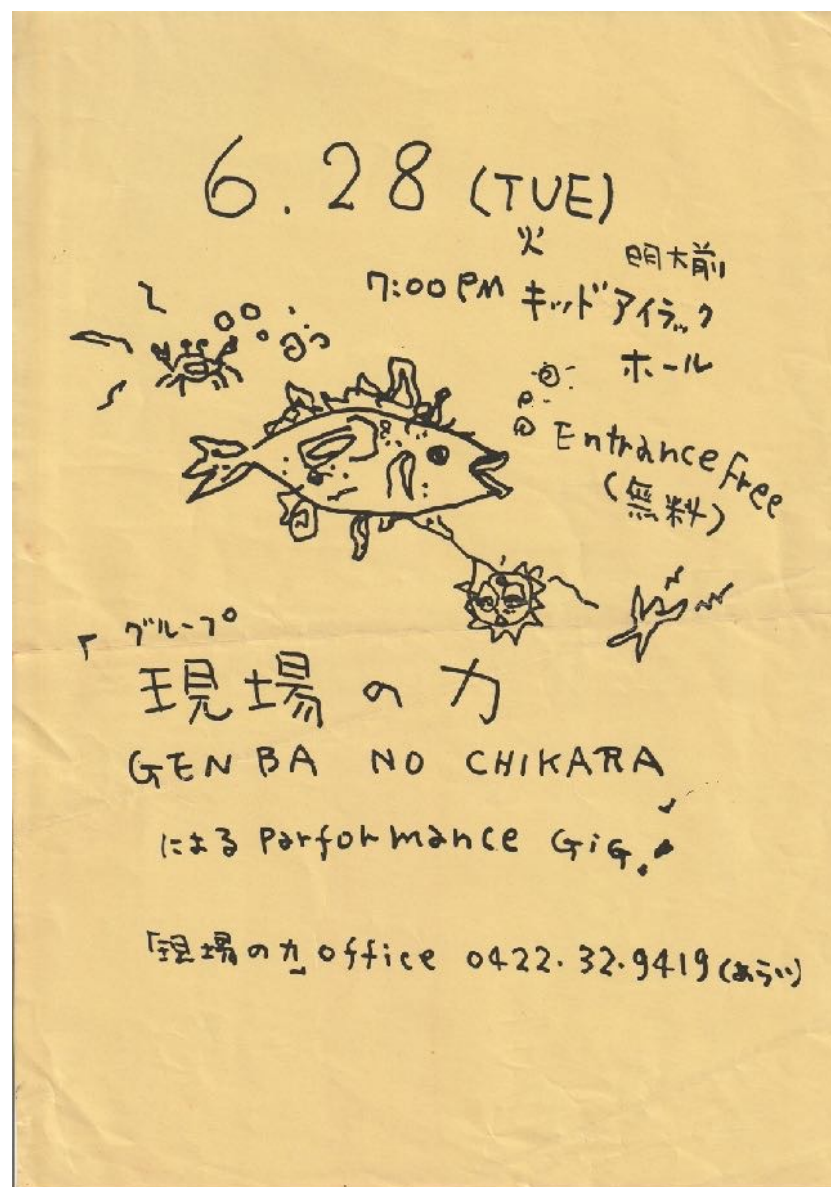 6.28 (TUE)
火
明大前
7:00PM キッドアイラック
ホール
Entrance free
(無料)
「グループ
現場の力
GENBA NO CHIKARA
による Parformance GiG!
「現場の力」office 0422.32.9419 (あらい)